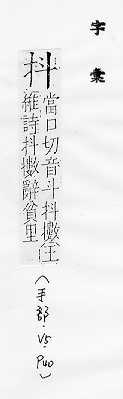 字彙
抖
當口切音斗抖擻王
維詩抖擻辭貧里
(手部.V5.